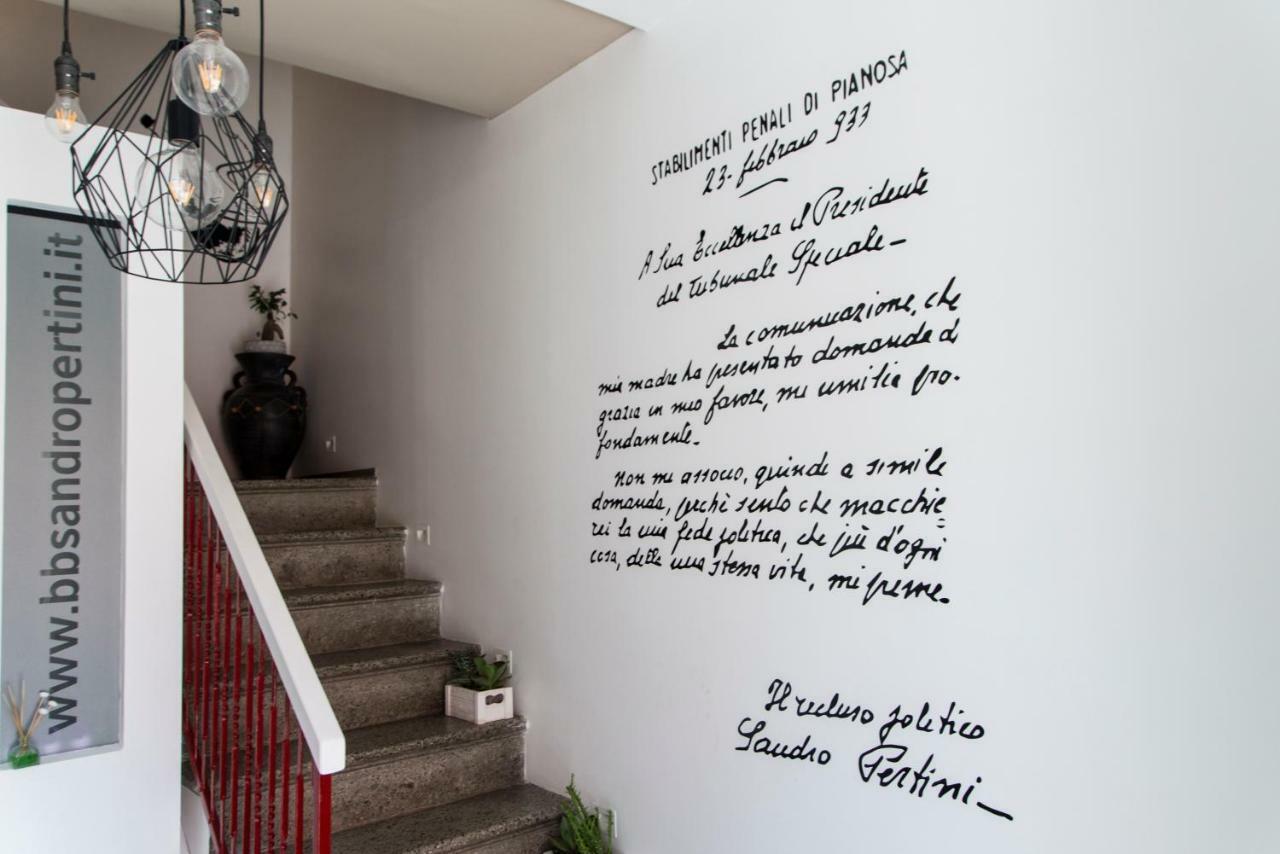 www.bbsandropertini.it
STABILIMENTI PENALI DI PIANOSA
23 - febbraio 933
A Sua Eccellenza il Presidente
del Tribunale Speciale -
La comunicazione, che
mia madre ha presentato domanda di
grazia in mio favore, mi umilia pro-
fondamente -
Non mi associo, quindi a simile
domanda, perchè sento che macchie=
rei la mia fede politica, che più d'ogni
cosa, della mia stessa vita, mi preme -
Il recluso politico
Sandro Pertini -